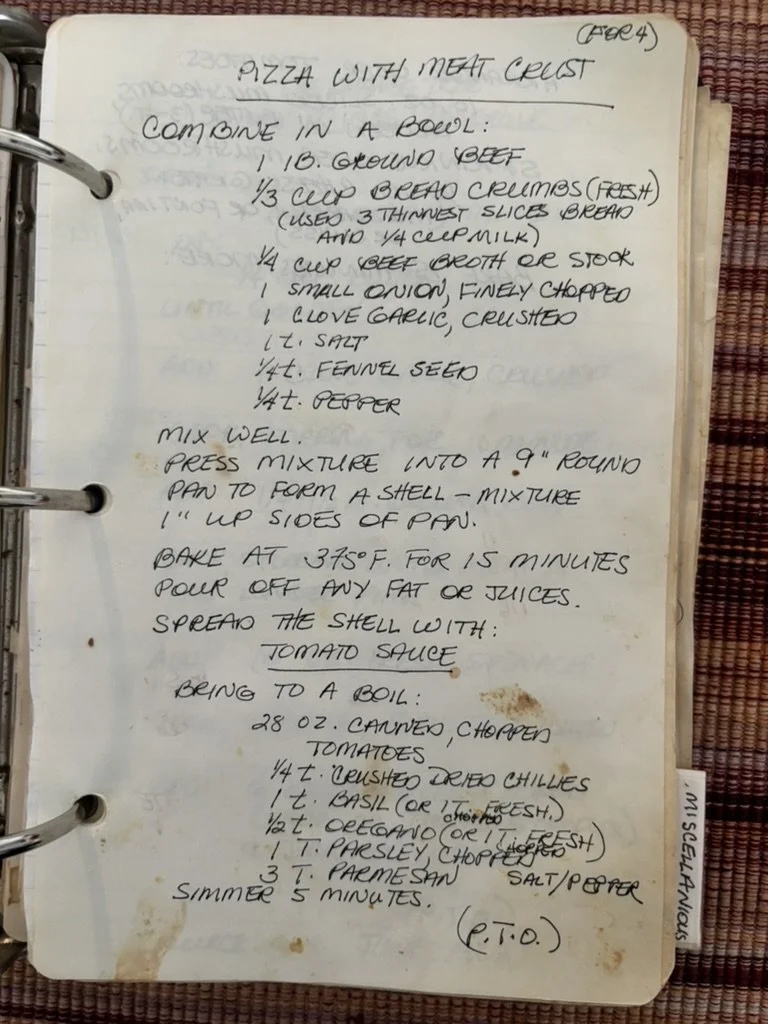 (FOR 4)
PIZZA WITH MEAT CRUST
COMBINE IN A BOWL:
1 lB. GROUND BEEF
1/3 CUP BREAD CRUMBS (FRESH)
(USED 3 THINNEST SLICES BREAD
AND 1/4 CUP MILK)
1/4 CUP BEEF BROTH OR STOCK
1 SMALL ONION, FINELY CHOPPED
1 CLOVE GARLIC, CRUSHED
1 t. SALT
1/4 t. FENNEL SEED
1/4 t. PEPPER
MIX WELL.
PRESS MIXTURE INTO A 9" ROUND
PAN TO FORM A SHELL - MIXTURE
1" UP SIDES OF PAN.
BAKE AT 375°F. FOR 15 MINUTES
POUR OFF ANY FAT OR JUICES.
SPREAD THE SHELL WITH:
TOMATO SAUCE
BRING TO A BOIL:
28 OZ. CANNED, CHOPPED
TOMATOES
1/4 t. CRUSHED DRIED CHILLIES
1 t. BASIL (OR 1 T. FRESH.)
CHOPPED
1/2 t. OREGANO (OR 1 T. FRESH)
CHOPPED
1 T. PARSLEY, CHOPPED
3 T. PARMESAN SALT/PEPPER
SIMMER 5 MINUTES.
(P.T.O.)
MISCELLANIOUS